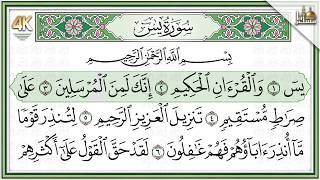 4K
سورة يس
بِسْمِ اللَّهِ الرَّحْمَٰنِ الرَّحِيمِ
يسٓ ١ وَالْقُرْءَانِ الْحَكِيمِ ٢ إِنَّكَ لَمِنَ الْمُرْسَلِينَ ٣ عَلَىٰ
صِرَاطٍ مُّسْتَقِيمٍ ٤ تَنزِيلَ الْعَزِيزِ الرَّحِيمِ ٥ لِتُنذِرَ قَوْمًا
مَّآ أُنذِرَ ءَابَآؤُهُمْ فَهُمْ غَٰفِلُونَ ٦ لَقَدْ حَقَّ الْقَوْلُ عَلَىٰٓ أَكْثَرِهِمْ